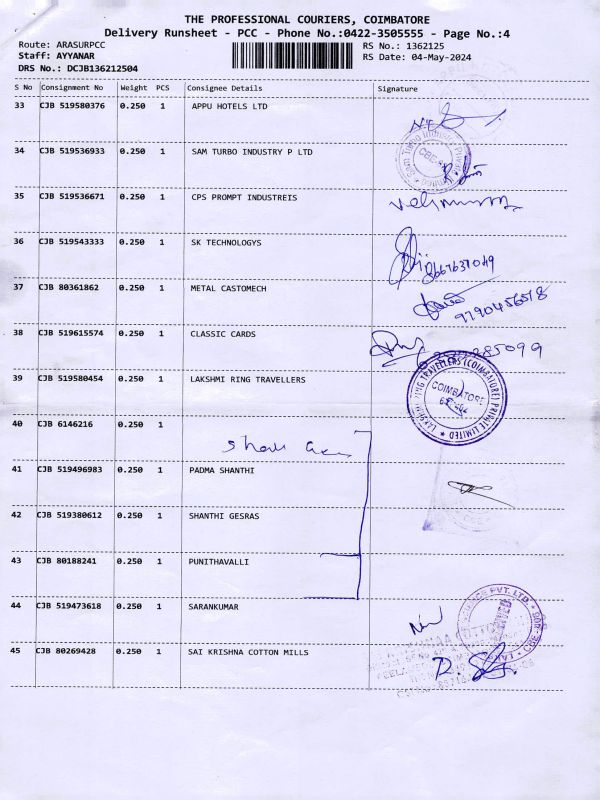 THE PROFESSIONAL COURIERS, COIMBATORE
Delivery Runsheet - PCC - Phone No.:0422-3505555 - Page No.:4
Route: ARASURPCC
RS No.: 1362125
Staff: AYYANAR
RS Date: 04-May-2024
DRS No.: DCJB136212504
S No Consignment No Weight PCS Consignee Details Signature
33 CJB 519580376 0.250 1 APPU HOTELS LTD
34 CJB 519536933 0.250 1 SAM TURBO INDUSTRY P LTD
35 CJB 519536671 0.250 1 CPS PROMPT INDUSTREIS
36 CJB 519543333 0.250 1 SK TECHNOLOGYS
8667637049
37 CJB 80361862 0.250 1 METAL CASTOMECH
9790456518
38 CJB 519615574 0.250 1 CLASSIC CARDS
39 CJB 519580454 0.250 1 LAKSHMI RING TRAVELLERS
LAKSHMI RING TRAVELLERS (COIMBATORE) PRIVATE LIMITED
COIMBATORE
40 CJB 6146216 0.250 1
41 CJB 519496983 0.250 1 PADMA SHANTHI
42 CJB 519380612 0.250 1 SHANTHI GESRAS
43 CJB 80188241 0.250 1 PUNITHAVALLI
44 CJB 519473618 0.250 1 SARANKUMAR
45 CJB 80269428 0.250 1 SAI KRISHNA COTTON MILLS